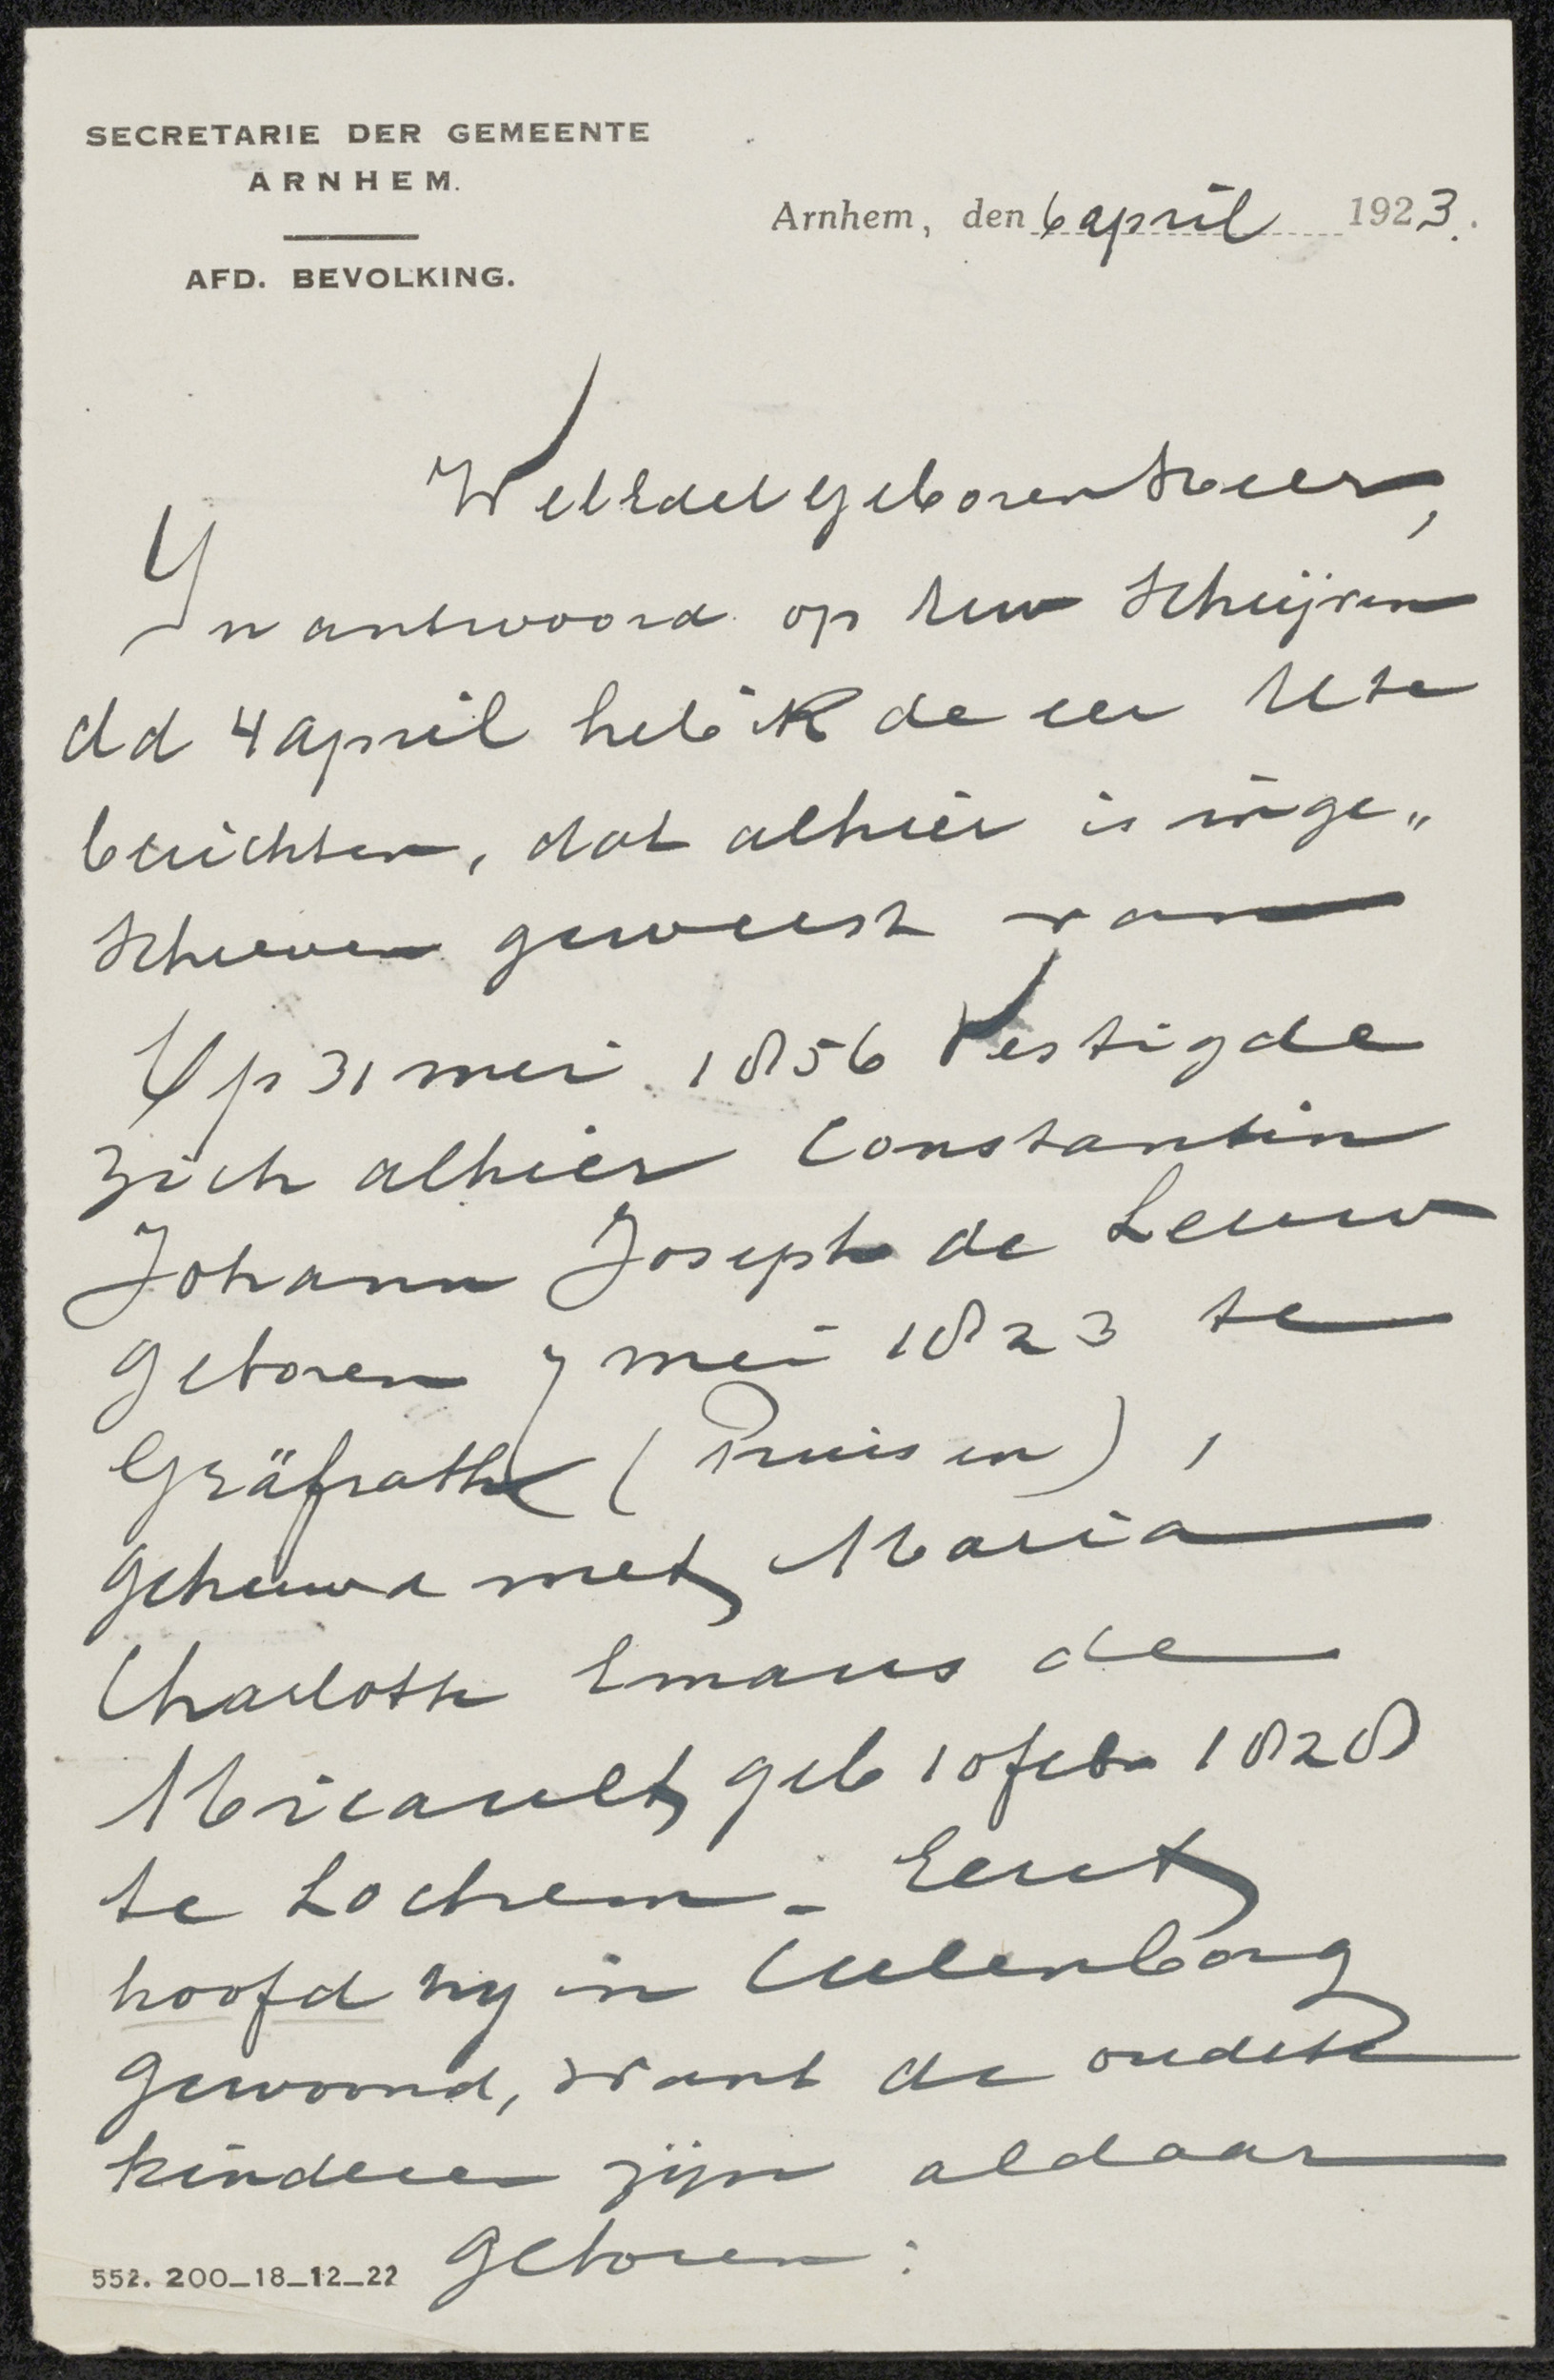 SECRETARIE DER GEMEENTE
ARNHEM.
AFD. BEVOLKING.
Arnhem, den 6 april 1923.
WelEdelgeboren Heer,
In antwoord op Uw Schrijven
dd 4 april heb ik de eer U te
berichten, dat alhier is inge„
schreven geweest van
Op 31 mei 1856 Vestigde
zich alhier Constantin
Johann Joseph de Leuw
geboren 7 mei 1823 te
Gräfrath (Pruisen),
gehuwd met Maria
Charlotte Emaus de
Micault geb 10 feb. 1828
te Lochem. Eerst
hoofd hij in Culenborg
gewoond, want de oudste
kinderen zijn aldaar
geboren:
552. 200_18_12_22